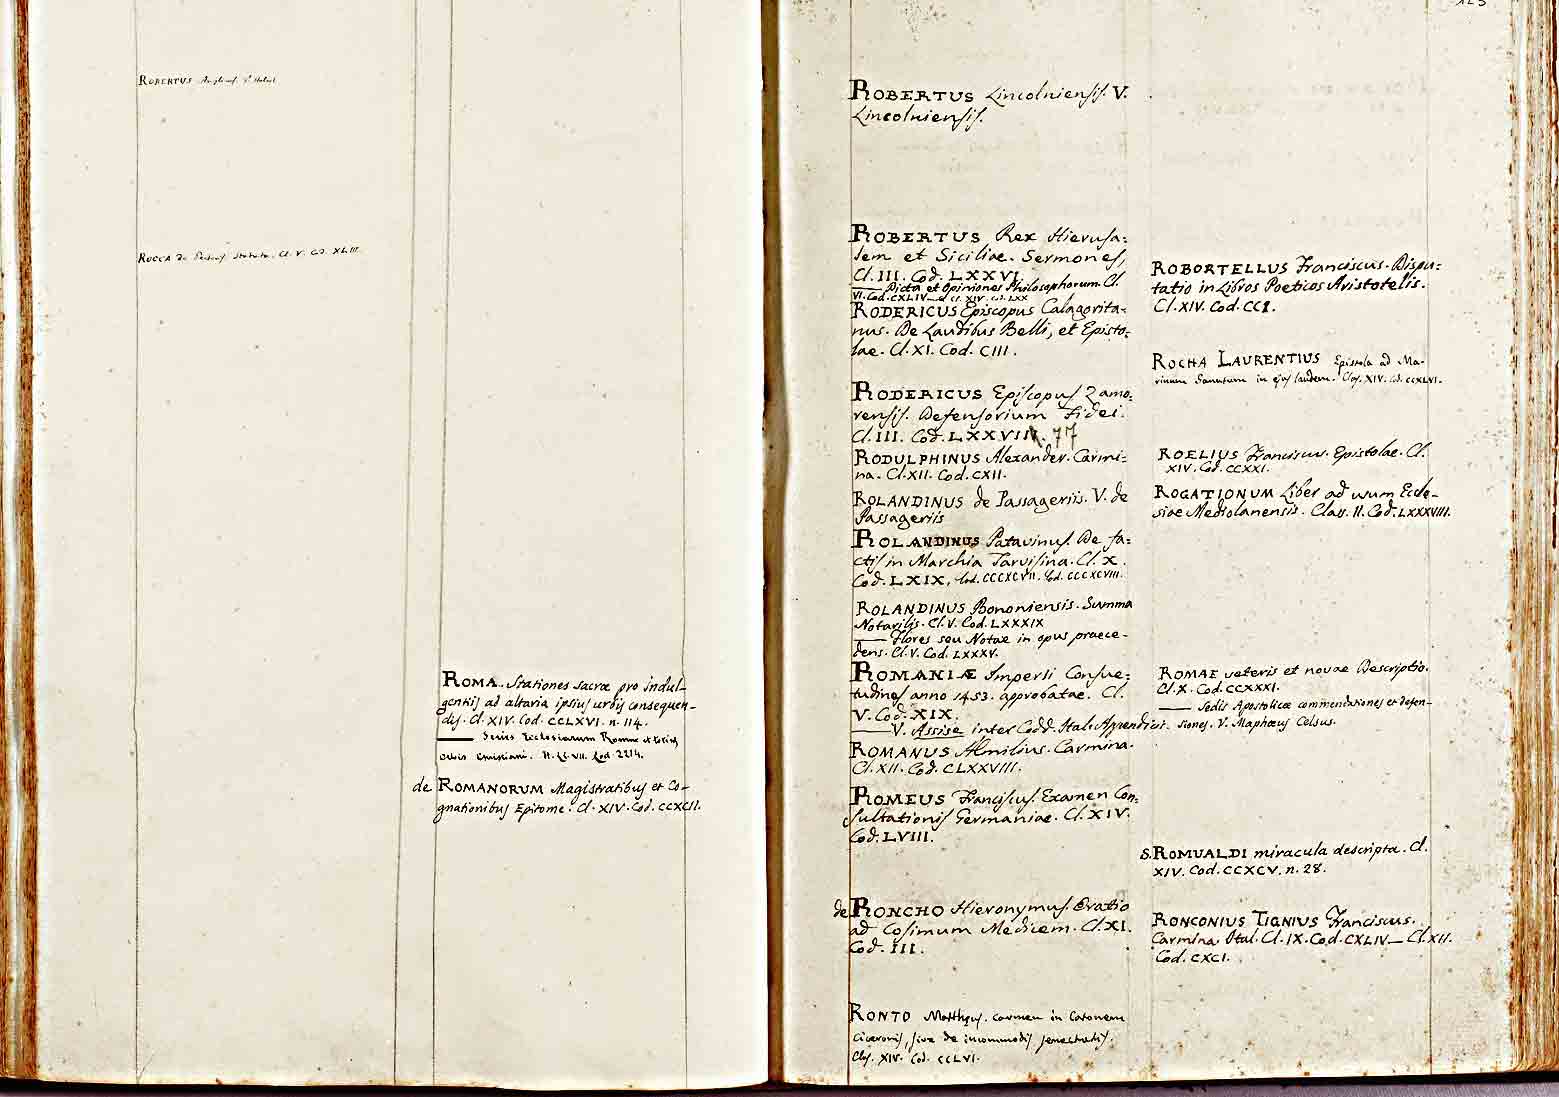 ROBERTUS
ROCCA de Statuta. Cl. V. Cod. XLIII.
ROMA. Stationes sacræ pro indul-
gentijs ad altaria ipsius urbis consequen-
dis. Cl. XIV. Cod. CCLXVI. n. 114.
—— Series Ecclesiarum Romæ et totius
orbis Christiani. Cl. VII. Cod. 2214.
de ROMANORUM Magistratibus et Co-
gnationibus Epitome. Cl. XIV. Cod. CCXCII.
ROBERTUS Lincolniensis. V.
Lincolniensis.
ROBERTUS Rex Hierusa:
lem et Siciliae. Sermones,
Cl. III. Cod. LXXVI.
—— Dicta et Opiniones Philosophorum. Cl.
VI. Cod. CXLIV — Cl. XIV. Cod. LXX
RODERICUS Episcopus Calagorita:
nus. De Laudibus Belli, et Episto:
lae. Cl. XI. Cod. CIII.
RODERICUS Episcopus Zamo:
rensis. Defensorium Fidei.
Cl. III. Cod. LXXVII. 77
RODULPHINUS Alexander. Carmi:
na. Cl. XII. Cod. CXII.
ROLANDINUS de Passageriis. V. de
Passageriis
ROLANDINUS Patavinus. De fa:
ctis in Marchia Tarvisina. Cl. X.
Cod. LXIX, Cod. CCCXCVII. Cod. CCCXCVIII.
ROLANDINUS Bononiensis. Summa
Notarilis. Cl. V. Cod. LXXXIX
—— Flores seu Notae in opus praece-
dens. Cl. V. Cod. LXXXV.
ROMANIÆ Imperii Consue:
tudines anno 1453. approbatae. Cl.
V. Cod. XIX.
—— V. Assise inter Codd. Ital. Appendicis.
ROMANUS Æmilius. Carmina.
Cl. XII. Cod. CLXXVIII.
ROMEUS Franciscus. Examen Con:
sultationis Germaniae. Cl. XIV.
Cod. LVIII.
de RONCHO Hieronymus. Oratio
ad Cosimum Medicem. Cl. XI.
Cod. III.
RONTO Matthęus. carmen in Catonem
Ciceronis, sive de incommodis senectutis.
Clas. XIV. Cod. CCLVI.
ROBORTELLUS Franciscus. Dispu:
tatio in Libros Poeticos Aristotelis.
Cl. XIV. Cod. CCI.
ROCHA LAURENTIUS Epistola ad Ma-
rinum Sanutum in ejus laudem. Clas. XIV. Cod. CCXLVI.
ROELIUS Franciscus. Epistolae. Cl.
XIV. Cod. CCXXI.
ROGATIONUM Liber ad usum Eccle-
siae Mediolanensis. Class. II. Cod. LXXXVIII.
ROMAE veteris et novae Descriptio.
Cl. X. Cod. CCXXXI.
—— Sedis Apostolicæ commendationes et defen-
siones. V. Maphœus Celsus.
S. ROMUALDI miracula descripta. Cl.
XIV. Cod. CCXCV. n. 28.
RONCONIUS TIGNIUS Franciscus.
Carmina Ital. Cl. IX. Cod. CXLIV — Cl. XII.
Cod. CXCI.